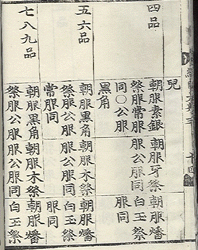 兒
四品
朝服素銀 朝服牙祭 朝服燔
祭服常服 服公服同 白玉祭
同○公服 服同
黑角
五六品
朝服黑角 朝服木祭 朝服燔
祭服公服 服公服同 白玉祭
常服同 服同
七八九品
朝服黑角 朝服木祭 朝服燔
祭服公服 服公服同 白玉祭